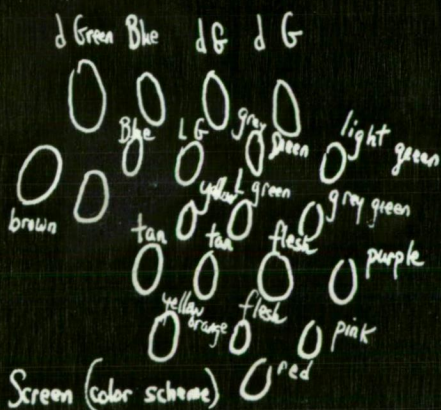 d Green Blue d G d G
Blue LG grey Green light green
brown yellow L green grey green
tan tan flesh purple
yellow orange flesh pink
Screen (color scheme) red